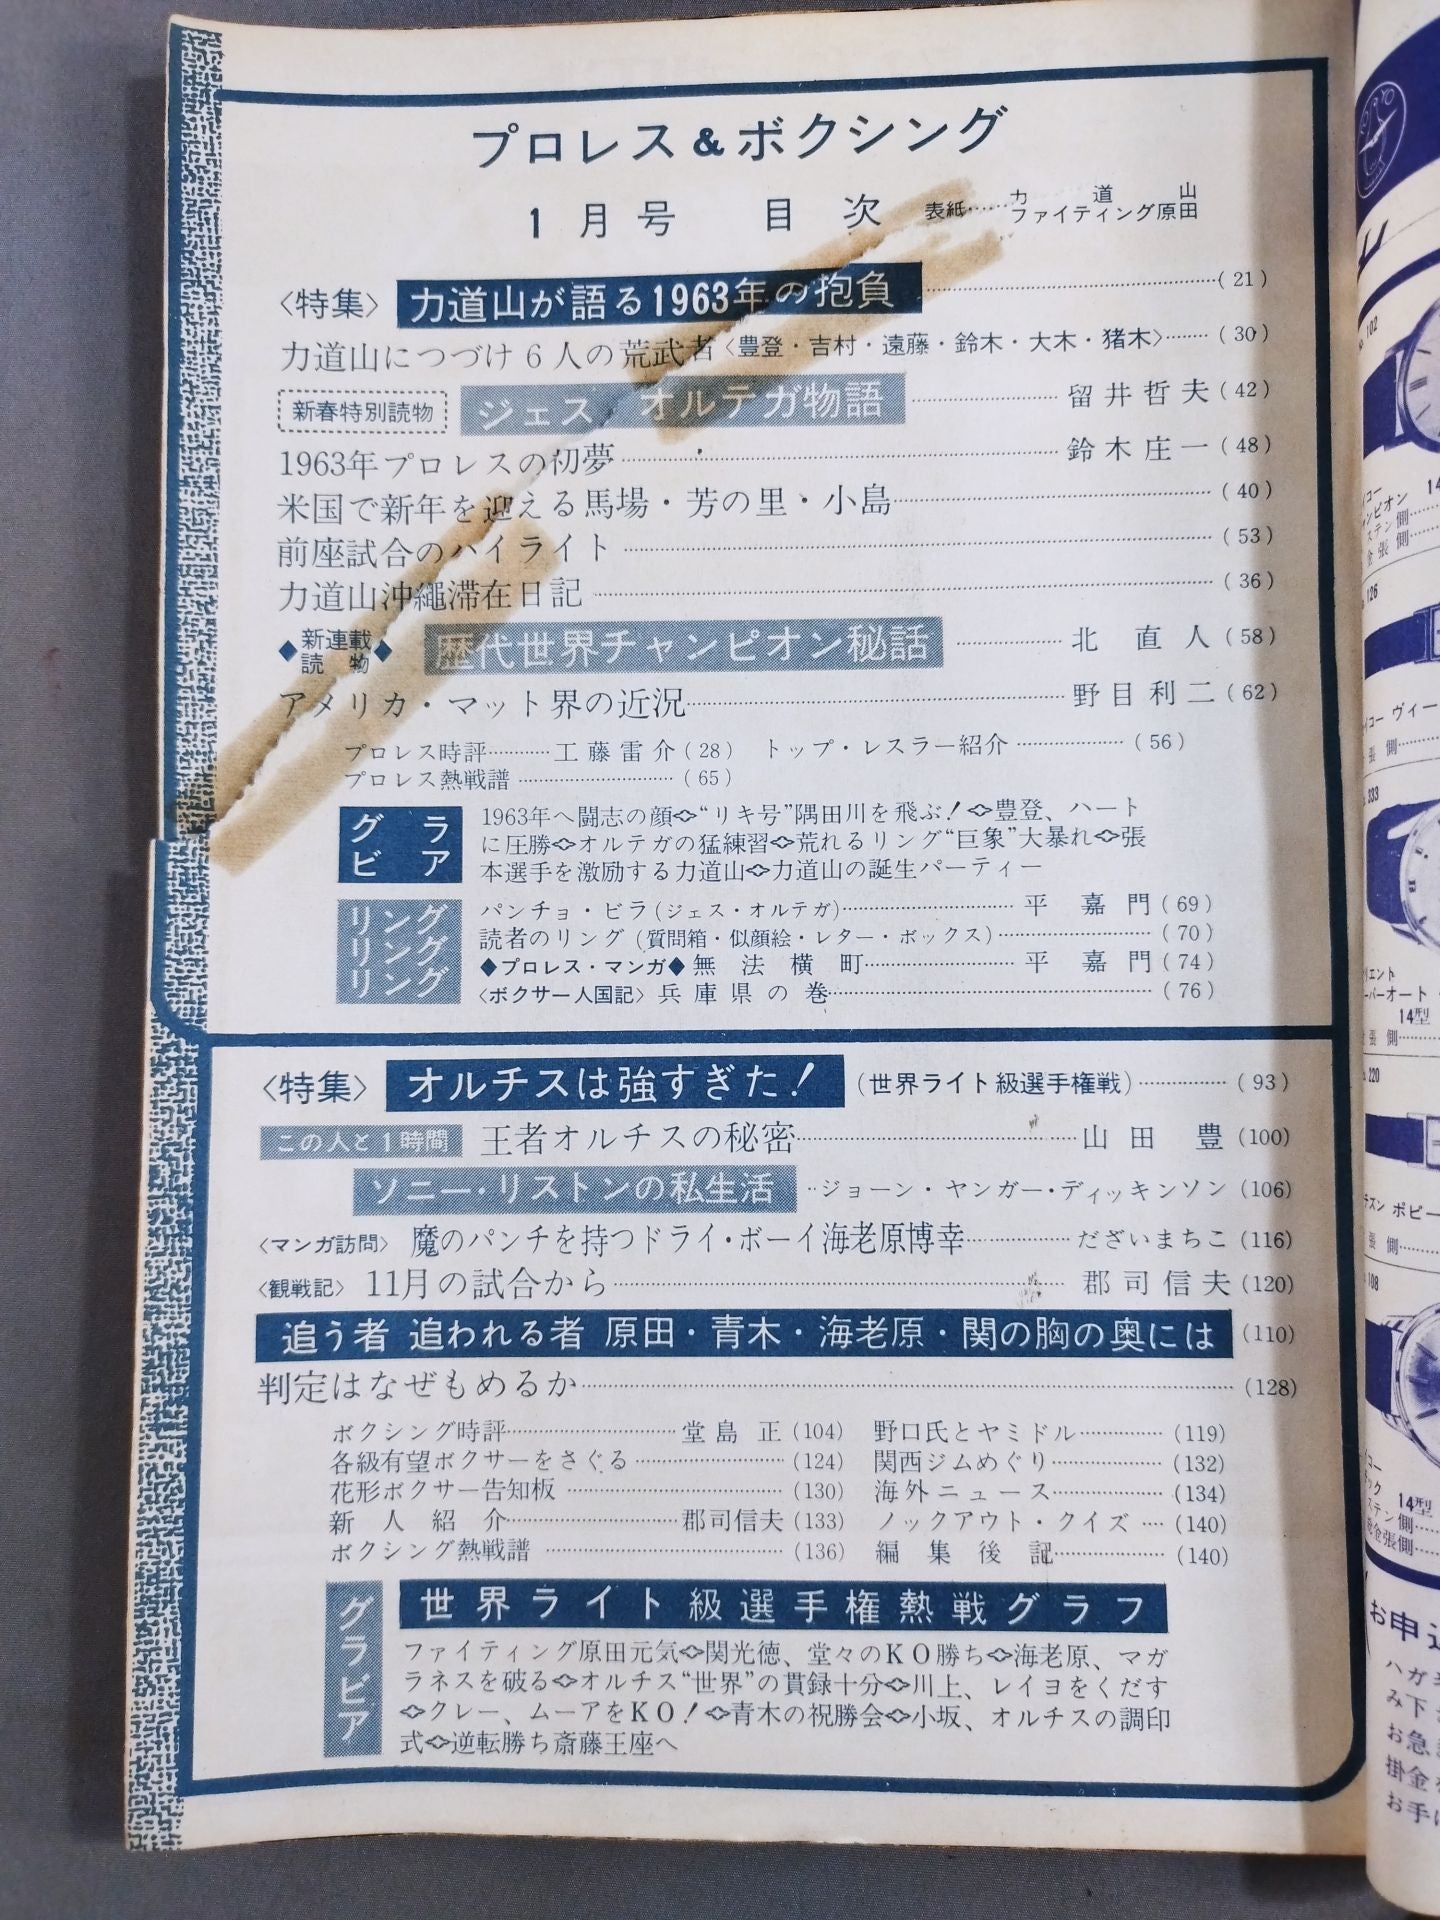 プロレス&ボクシング
1月号 目次 表紙……力道山
ファイティング原田
〈特集〉 力道山が語る1963年の抱負……(21)
力道山につづけ6人の荒武者〈豊登・吉村・遠藤・鈴木・大木・猪木〉……(30)
新春特別読物 ジェス・オルテガ物語……留井哲夫(42)
1963年プロレスの初夢……鈴木庄一(48)
米国で新年を迎える馬場・芳の里・小島……(40)
前座試合のハイライト……(53)
力道山沖縄滞在日記……(36)
◆新連載読物◆ 歴代世界チャンピオン秘話……北直人(58)
アメリカ・マット界の近況……野目利二(62)
プロレス時評……工藤雷介(28) トップ・レスラー紹介……(56)
プロレス熱戦譜……(65)
グラビア
1963年へ闘志の顔◇“リキ号”隅田川を飛ぶ!◇豊登、ハート
に圧勝◇オルテガの猛練習◇荒れるリング“巨象”大暴れ◇張
本選手を激励する力道山◇力道山の誕生パーティー
リング
リング
リング
パンチョ・ビラ(ジェス・オルテガ)……平嘉門(69)
読者のリング(質問箱・似顔絵・レター・ボックス)……(70)
◆プロレス・マンガ◆無法横町……平嘉門(74)
〈ボクサー人国記〉兵庫県の巻……(76)
〈特集〉 オルチスは強すぎた!(世界ライト級選手権戦)……(93)
この人と1時間 王者オルチスの秘密……山田豊(100)
ソニー・リストンの私生活……ジョーン・ヤンガー・ディッキンソン(106)
〈マンガ訪問〉 魔のパンチを持つドライ・ボーイ海老原博幸……だざいまちこ(116)
〈観戦記〉 11月の試合から……郡司信夫(120)
追う者 追われる者 原田・青木・海老原・関の胸の奥には(110)
判定はなぜもめるか……(128)
ボクシング時評……堂島正(104) 野口氏とヤミドル……(119)
各級有望ボクサーをさぐる……(124) 関西ジムめぐり……(132)
花形ボクサー告知板……(130) 海外ニュース……(134)
新人紹介……郡司信夫(133) ノックアウト・クイズ……(140)
ボクシング熱戦譜……(136) 編集後記……(140)
グラビア
世界ライト級選手権熱戦グラフ
ファイティング原田元気◇関光徳、堂々のKO勝ち◇海老原、マガ
ラネスを破る◇オルチス“世界”の貫録十分◇川上、レイヨをくだす
◇クレー、ムーアをKO!◇青木の祝勝会◇小坂、オルチスの調印
式◇逆転勝ち斎藤王座へ
102
126
333
14型
220
108
14型
お申込
ハガキ
掛金